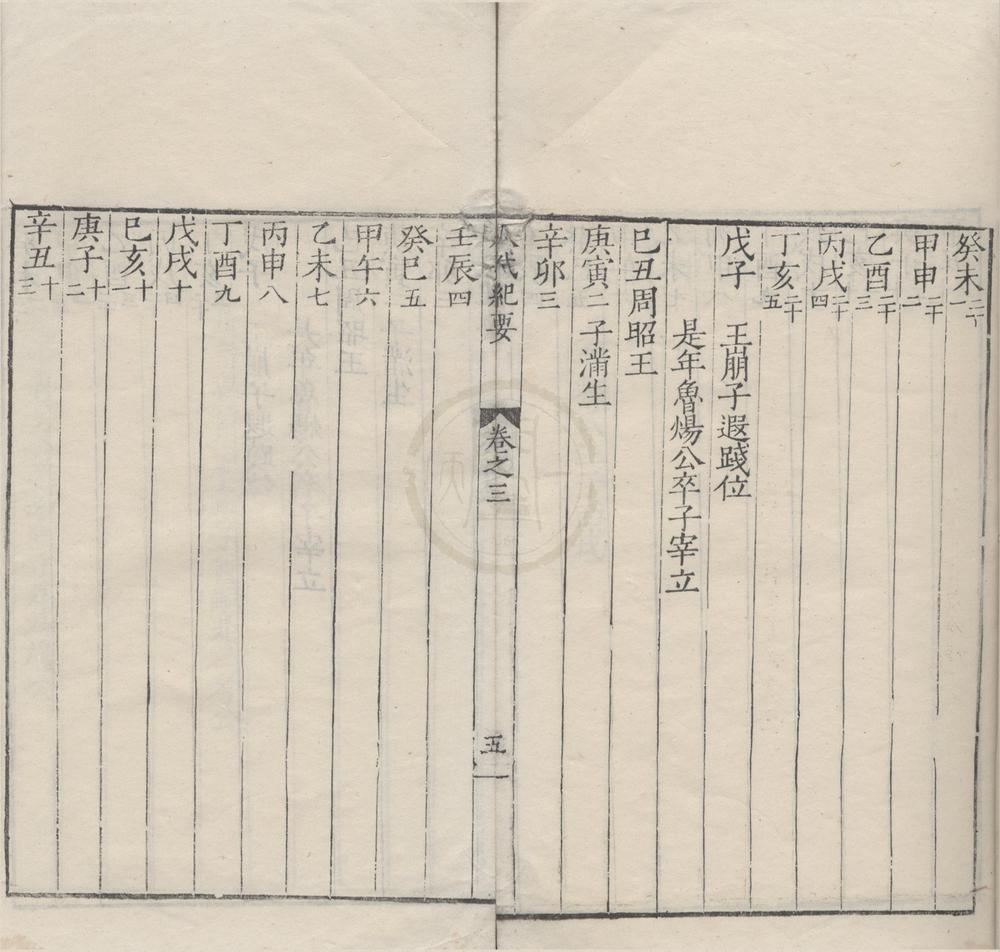 癸未二十一
甲申二十二
乙酉二十三
丙戌二十四
丁亥二十五
戊子　王崩子遐踐位
是年魯煬公卒子宰立
己丑周昭王
庚寅二　子滿生
辛卯三
代紀要　卷之三　五
壬辰四
癸巳五
甲午六
乙未七
丙申八
丁酉九
戊戌十
己亥十一
庚子十二
辛丑十三